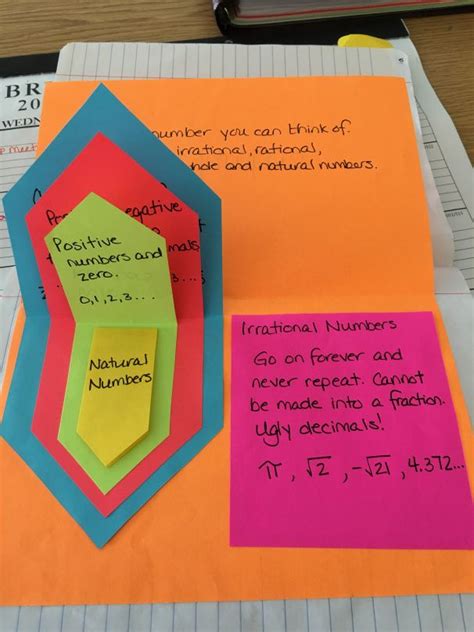 BR
20
WEDN
number you can think of.
irrational, rational,
whole and natural numbers.
Positive
numbers and
zero.
0,1,2,3...
Natural
Numbers
Irrational Numbers
Go on forever and
never repeat. Cannot
be made into a fraction.
Ugly decimals!
π, √2, -√21, 4.372...